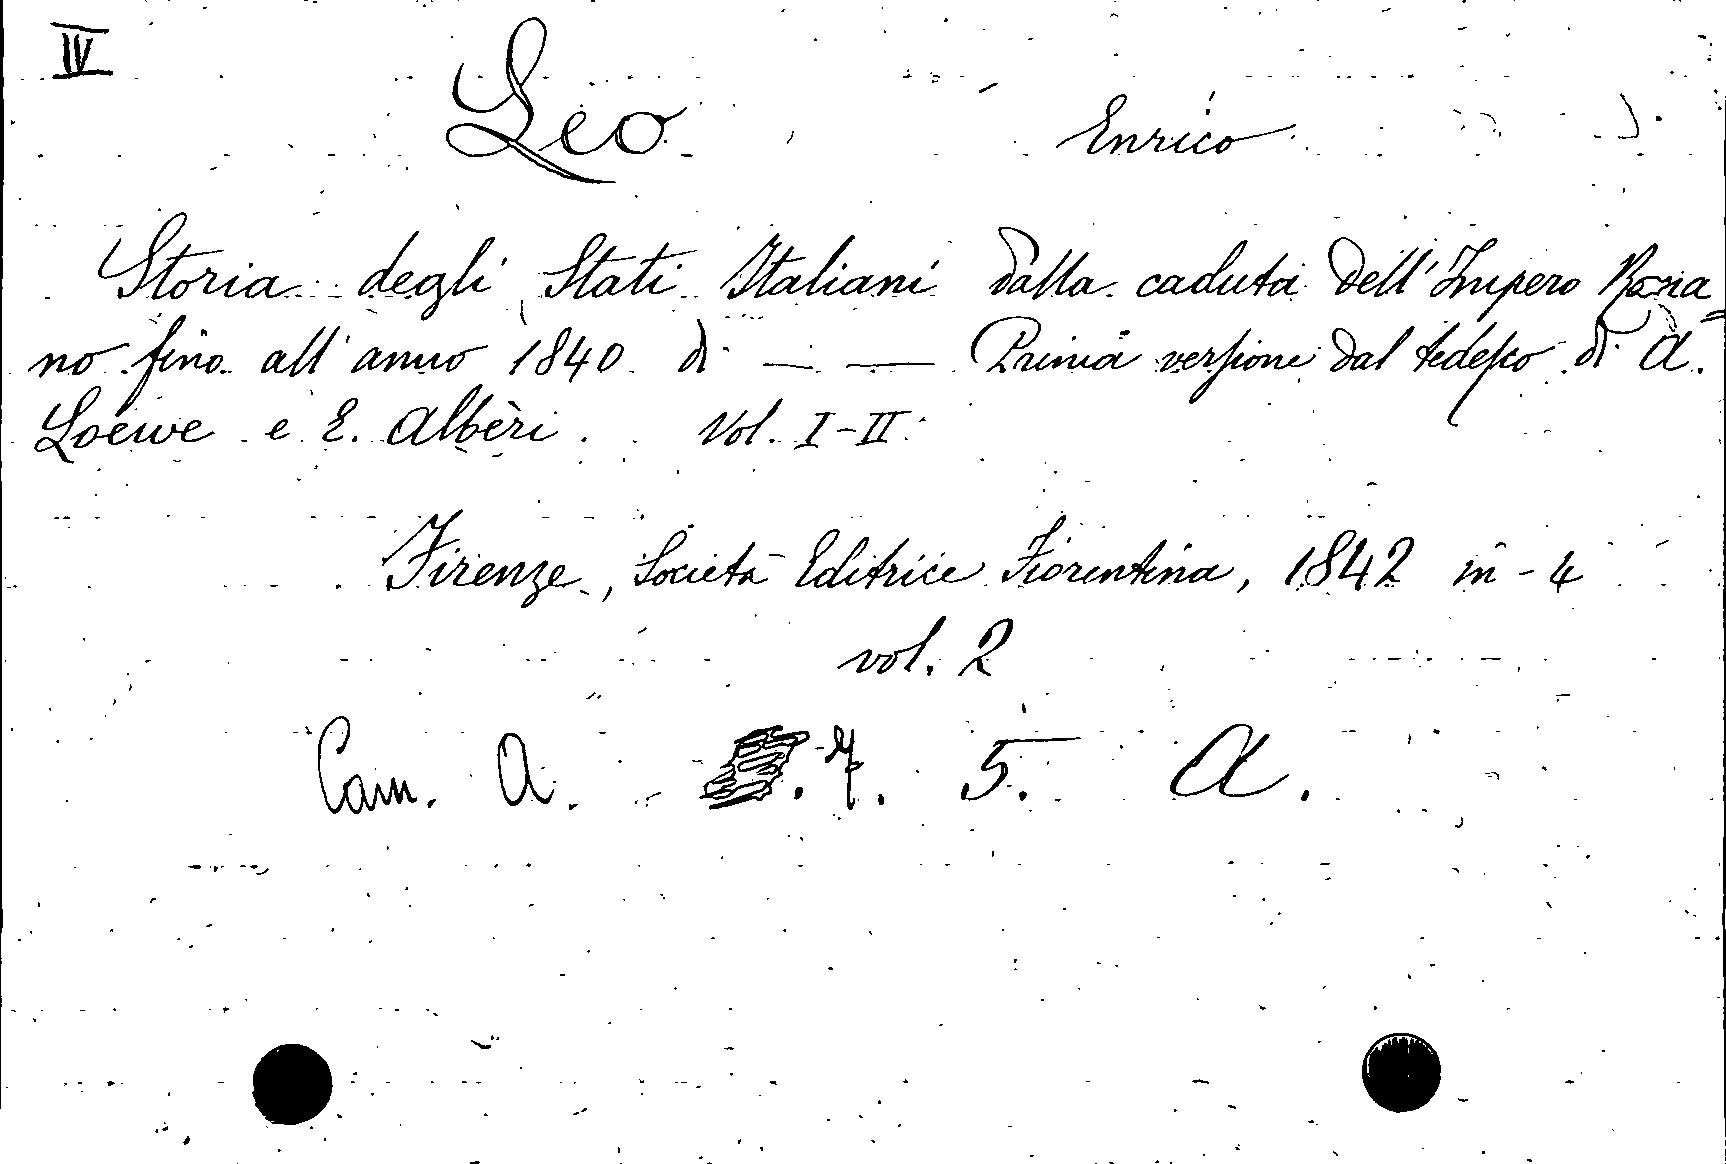 IV
Leo Enrico
Storia degli Stati Italiani dalla caduta dell'Impero Roma=
no fino all'anno 1840 di — — Prima versione dal tedesco di A.
Loewe e E. Albèri. Vol. I-II.
Firenze, Società Editrice Fiorentina, 1842 in-4
vol. 2
Cam. A. 7. 5. A.